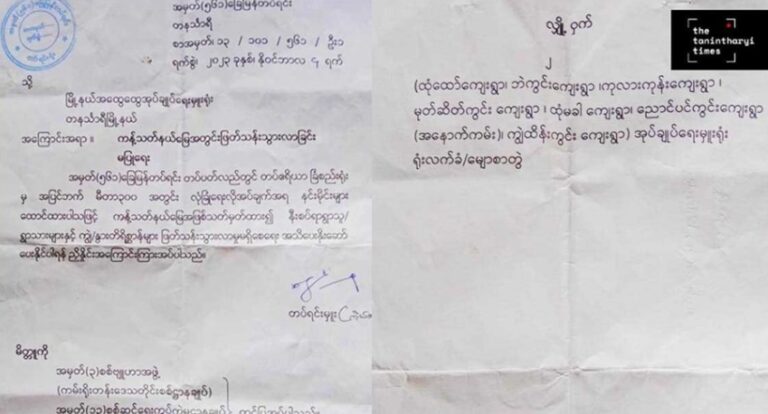 အမှတ်(၅၆၁)ခြေမြန်တပ်ရင်း
တနင်္သာရီ
စာအမှတ်၊ ၁၃ / ၁၀၁ / ၅၆၁ / ဦး၁
ရက်စွဲ၊ ၂၀၂၃ ခုနှစ်၊ နိုဝင်ဘာလ ရက်
သို့
မြို့နယ်အထွေထွေအုပ်ချုပ်ရေးမှူးရုံး
တနင်္သာရီမြို့နယ်
အကြောင်းအရာ ။ ကန့်သတ်နယ်မြေအတွင်းဖြတ်သန်းသွားလာခြင်း
မပြုရေး
အမှတ်(၅၆၁)ခြေမြန်တပ်ရင်း တပ်ပတ်လည်တွင် တပ်ဧရိယာ ခြံစည်းရိုး
မှ အပြင်ဘက် မီတာ၃၀၀ အတွင်း လုံခြုံရေးလိုအပ်ချက်အရ နင်းမိုင်းများ
ထောင်ထားပါသဖြင့် ကန့်သတ်နယ်မြေအဖြစ်သတ်မှတ်ထား၍ နီးစပ်ရာရွာသူ/
ရွာသားများနှင့် ကျွဲ/နွားတိရိစ္ဆာန်များ ဖြတ်သန်းသွားလာမှုမရှိစေရေး အသိပေးနှိုးဆော်
ပေးနိုင်ပါရန် ညှိနှိုင်းအကြောင်းကြားအပ်ပါသည်။
တပ်ရင်းမှူး
မိတ္တူကို
အမှတ်(၃)စစ်ဗျူဟာအဖွဲ့
(ကမ်းရိုးတန်းဒေသတိုင်းစစ်ဌာနချုပ်)
လျှို့ ဝှက်
၂
(ထုံထော်ကျေးရွာ၊ ဘဲကွင်းကျေးရွာ ၊ကုလားကုန်းကျေးရွာ ၊
မုတ်ဆိတ်ကွင်း ကျေးရွာ ၊ ထုံမခါ ကျေးရွာ၊ ညောင်ပင်ကွင်းကျေးရွာ
(အနောက်ကမ်း)၊ ကျွဲထိန်းကွင်း ကျေးရွာ) အုပ်ချုပ်ရေးမှူးရုံး
ရုံးလက်ခံ/မျှောစာတွဲ
the
tanintharyi
times